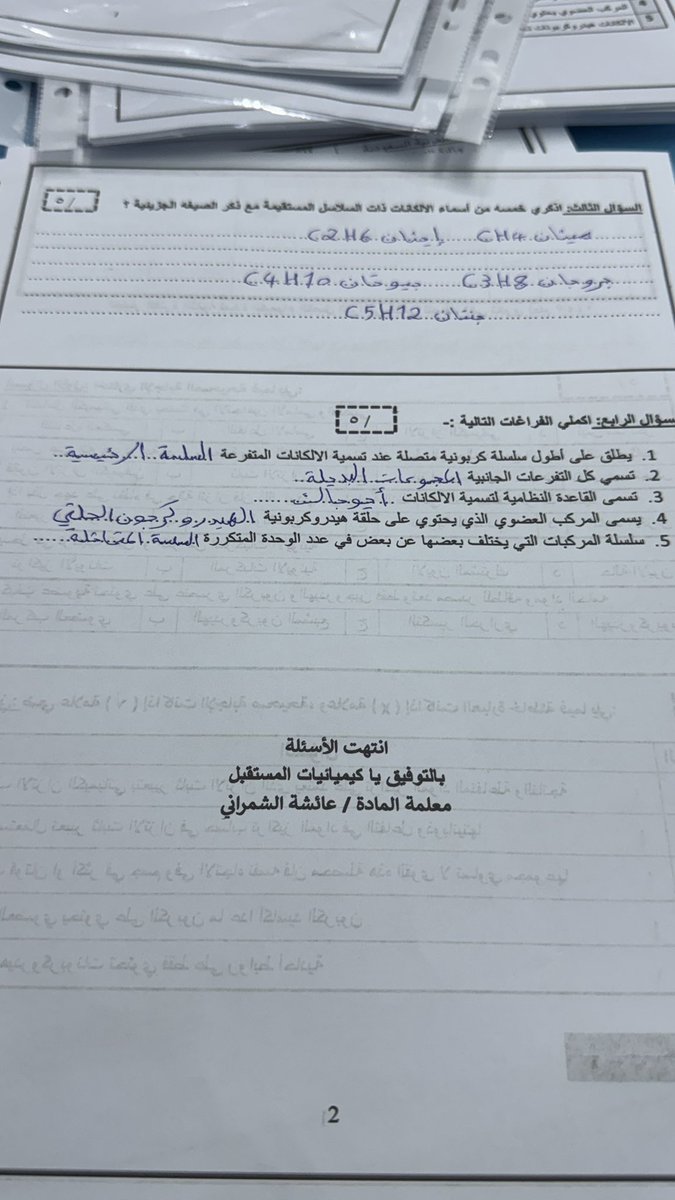 5 الألكانات هيدروكربونات
السؤال الثالث: اذكري خمسه من أسماء الألكانات ذات السلاسل المستقيمة مع ذكر الصيغه الجزيئية ؟ /٥
ميثان CH4 إيثان C2H6
C3H8 C4H10
C5H12
السؤال الرابع: اكملي الفراغات التالية :- /٥
1. يطلق على أطول سلسلة كربونية متصلة عند تسمية الالكانات المتفرعة السلسلة الرئيسية
2. تسمي كل التفرعات الجانبية المجموعات البديلة
3. تسمى القاعدة النظامية لتسمية الالكانات
4. يسمى المركب العضوي الذي يحتوي على حلقة هيدروكربونية الهيدروكربون الحلقي
5. سلسلة المركبات التي يختلف بعضها عن بعض في عدد الوحدة المتكررة السلسة المتماثلة
انتهت الأسئلة
بالتوفيق يا كيميائيات المستقبل
معلمة المادة / عائشة الشمراني
2